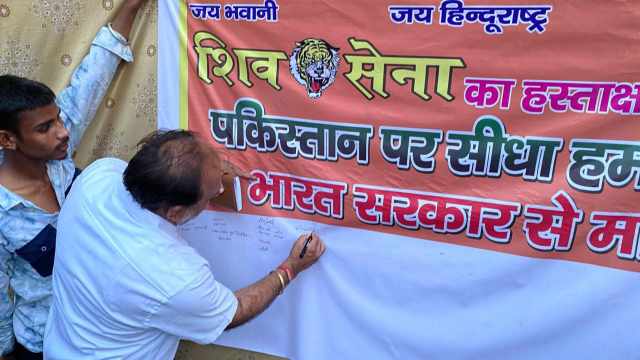 जय भवानी जय हिन्दूराष्ट्र
शिव सेना का हस्ताक्ष
पकिस्तान पर सीधा हम
भारत सरकार से मा